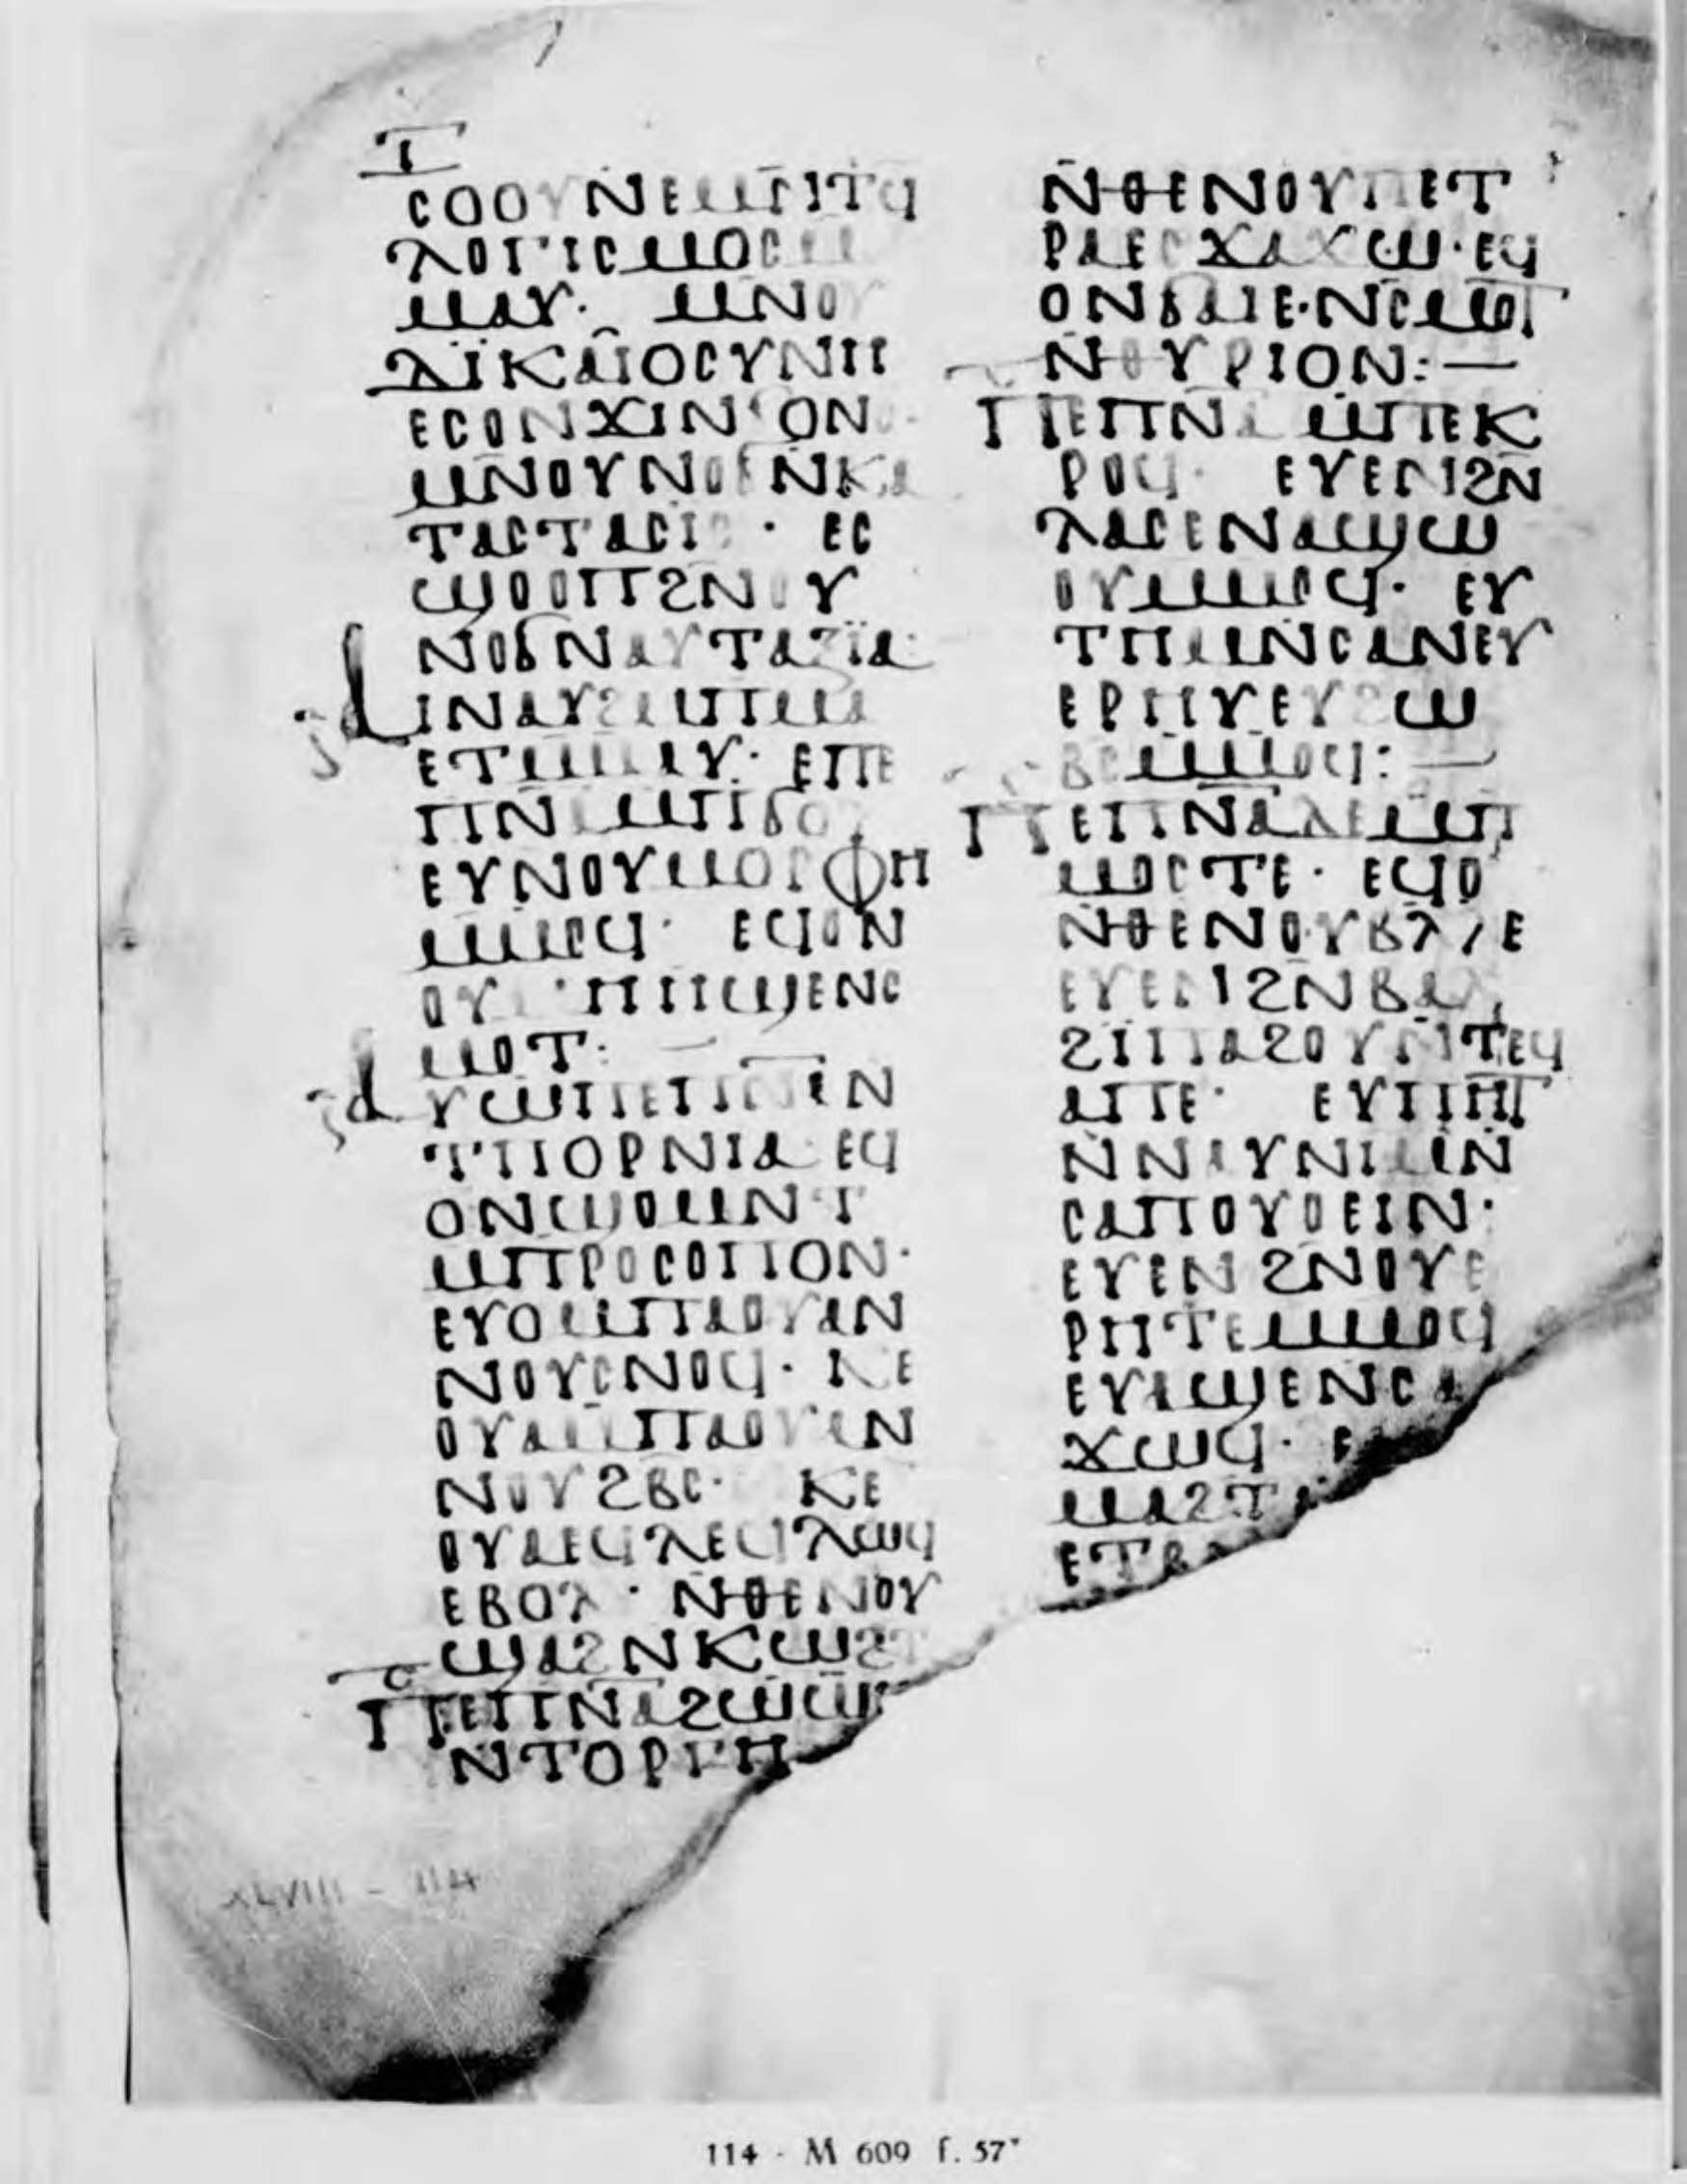 Ⲓ
ⲥⲟⲟⲩⲛ ⲉⲙⲛⲧϥ
ⲗⲟⲅⲓⲥⲙⲟⲥ
ⲙⲁⲩ· ⲙⲛⲟⲩ
ⲇⲓⲕⲁⲓⲟⲥⲩⲛⲏ
ⲉⲥⲟⲛϫⲓⲛϭⲟⲛⲥ·
ⲙⲛⲟⲩⲛⲟϭ ⲛⲕⲁ
ⲧⲁⲥⲧⲁⲥⲓⲥ · ⲉⲥ
ϣⲟⲟⲡϩⲛⲟⲩ
ⲛⲟϭ ⲛⲁⲩⲧⲁⲝⲓⲁ·
ⲁⲓⲛⲁⲩϩⲙⲡⲙⲁ
ⲉⲧⲙⲙⲁⲩ· ⲉⲡⲉ
ⲡⲛⲁ ⲙⲡϭⲟⲗ
ⲉⲩⲛⲟⲩⲙⲟⲣⲫⲏ
ⲙⲙⲟϥ· ⲉϥⲟⲛ
ⲟⲩⲙⲏⲏϣⲉⲛⲥ
ⲙⲟⲧ: —
ⲁⲩⲱ ⲡⲉⲡⲛⲁ ⲛ
ⲧⲡⲟⲣⲛⲓⲁ ⲉϥ
ⲟⲛϣⲟⲙⲛⲧ
ⲙⲡⲣⲟⲥⲟⲡⲟⲛ·
ⲉⲩⲟ ⲙⲡⲁⲟⲩⲁⲛ
ⲛⲟⲩⲥⲛⲟϥ· ⲕⲉ
ⲟⲩⲁ ⲙⲡⲁⲟⲩⲁⲛ
ⲛⲟⲩϩⲃⲥ· ⲕⲉ
ⲟⲩⲁ ⲉϥⲗⲉϥⲗⲱϥ
ⲉⲃⲟⲗ · ⲛⲑⲉ ⲛⲟⲩ
ϣⲁϩ ⲛⲕⲱϩⲧ
ⲡⲉⲡⲛⲁ ϩⲱⲱϥ
ⲛⲧⲟⲣⲅⲏ
ⲛⲑⲉ ⲛⲟⲩⲡⲉⲧ
ⲣⲁ ⲉⲥϫⲁϫⲱ· ⲉϥ
ⲟⲛϭⲁⲓⲉ· ⲛⲥⲙⲟⲧ
ⲛⲑⲩⲣⲓⲟⲛ: —
ⲡⲉⲡⲛⲁ ⲙⲡⲉⲕ
ⲣⲟϥ· ⲉⲩⲉⲛϩⲛ
ⲗⲁⲥ ⲉⲛⲁϣⲱ
ⲟⲩ ⲙⲙⲟϥ· ⲉⲩ
ⲧⲏⲙ ⲛⲥⲁⲛⲉⲩ
ⲉⲣⲏⲩ ⲉⲩϩⲱ
ⲃⲥ ⲙⲙⲟϥ: —
ⲡⲉⲡⲛⲁ ⲇⲉ ⲙⲡ
ⲙⲟⲥⲧⲉ · ⲉϥⲟ
ⲛⲑⲉ ⲛⲟⲩⲃⲗⲗⲉ
ⲉⲩⲉⲛϩⲛⲃⲁⲗ
ϩⲓⲡⲁϩⲟⲩ ⲛⲧⲉϥ
ⲁⲡⲉ· ⲉⲩⲡⲏⲧ
ⲛⲛⲁⲩ ⲛⲓⲙ ⲛ
ⲥⲁⲡⲟⲩⲟⲉⲓⲛ·
ⲉⲩⲉⲛϩⲛⲟⲩⲉ
ⲣⲏⲧⲉ ⲙⲙⲟϥ
ⲉⲩⲁϣⲉ ⲛⲥⲁ
ϫⲱϥ·
ⲙⲁϩⲧ
ⲉⲧⲃ
XLVIII - 114
114 - M 609 f. 57ᵛ